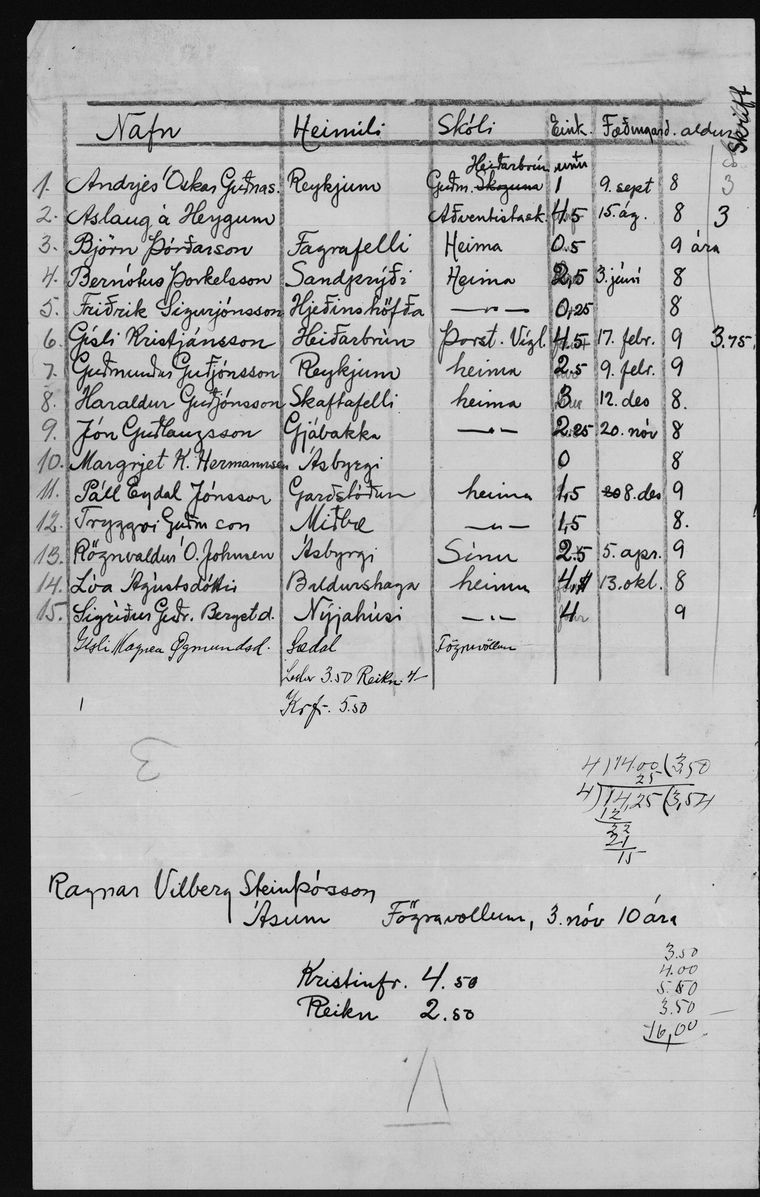 Nafn Heimili Skóli Eink. Fæðingard. aldur Skrift
Heiðarbrún
1. Andrjes Óskar Guðnas. Reykjum Guðm. 1 9. sept 8 3
2. Aslaug á Heygum Aðventistask. 4.5 15. ág. 8 3
3. Björn Þórðarson Fagrafelli Heima 0.5 9 ára
4. Bernótus Þorkelsson Sandprýði Heima 2,5 3. júní 8
5. Friðrik Sigurjónsson Hjeðinshöfða —"— 0,25 8
6. Gísli Kristjánsson Heiðarbrún Þorst. Vígl. 4.5 17. febr. 9 3.75
7. Guðmundur Guðjónsson Reykjum heima 2.5 9. febr. 9
8. Haraldur Guðjónsson Skaftafelli heima 3 12. des 8.
9. Jón Guðlaugsson Gjábakka —"— 2.25 20. nóv 8
10. Margrjet K. Hermannsen Ásbyrgi 0 8
11. Páll Eydal Jónsson Garðstöðum heima 1,5 8. des 9
12. Tryggvi Guðm son Miðbæ —"— 1,5 8.
13. Rögnvaldur Ó. Johnsen Ásbyrgi Sínu 2.5 5. apr. 9
14. Lóa Ágústsdóttir Baldurshaga heima 4, 13. okt. 8
15. Sigríður Guðr. Bergst.d. Nýjahúsi —"— 4 9
Gísli Magnea Øgmundsd. Sædal Fögruvöllum
3.50 Reikn. 4-
Krfr. 5.50
3
4)14.00(3,50
25
4)14,25(3,54
12
22
21
15
Ragnar Vilberg Steinþórsson
Ásum Fögruvollum, 3. nóv 10 ára
3.50
Kristinfr. 4.50 4.00
5.50
Reikn 2.50 3.50
16,00